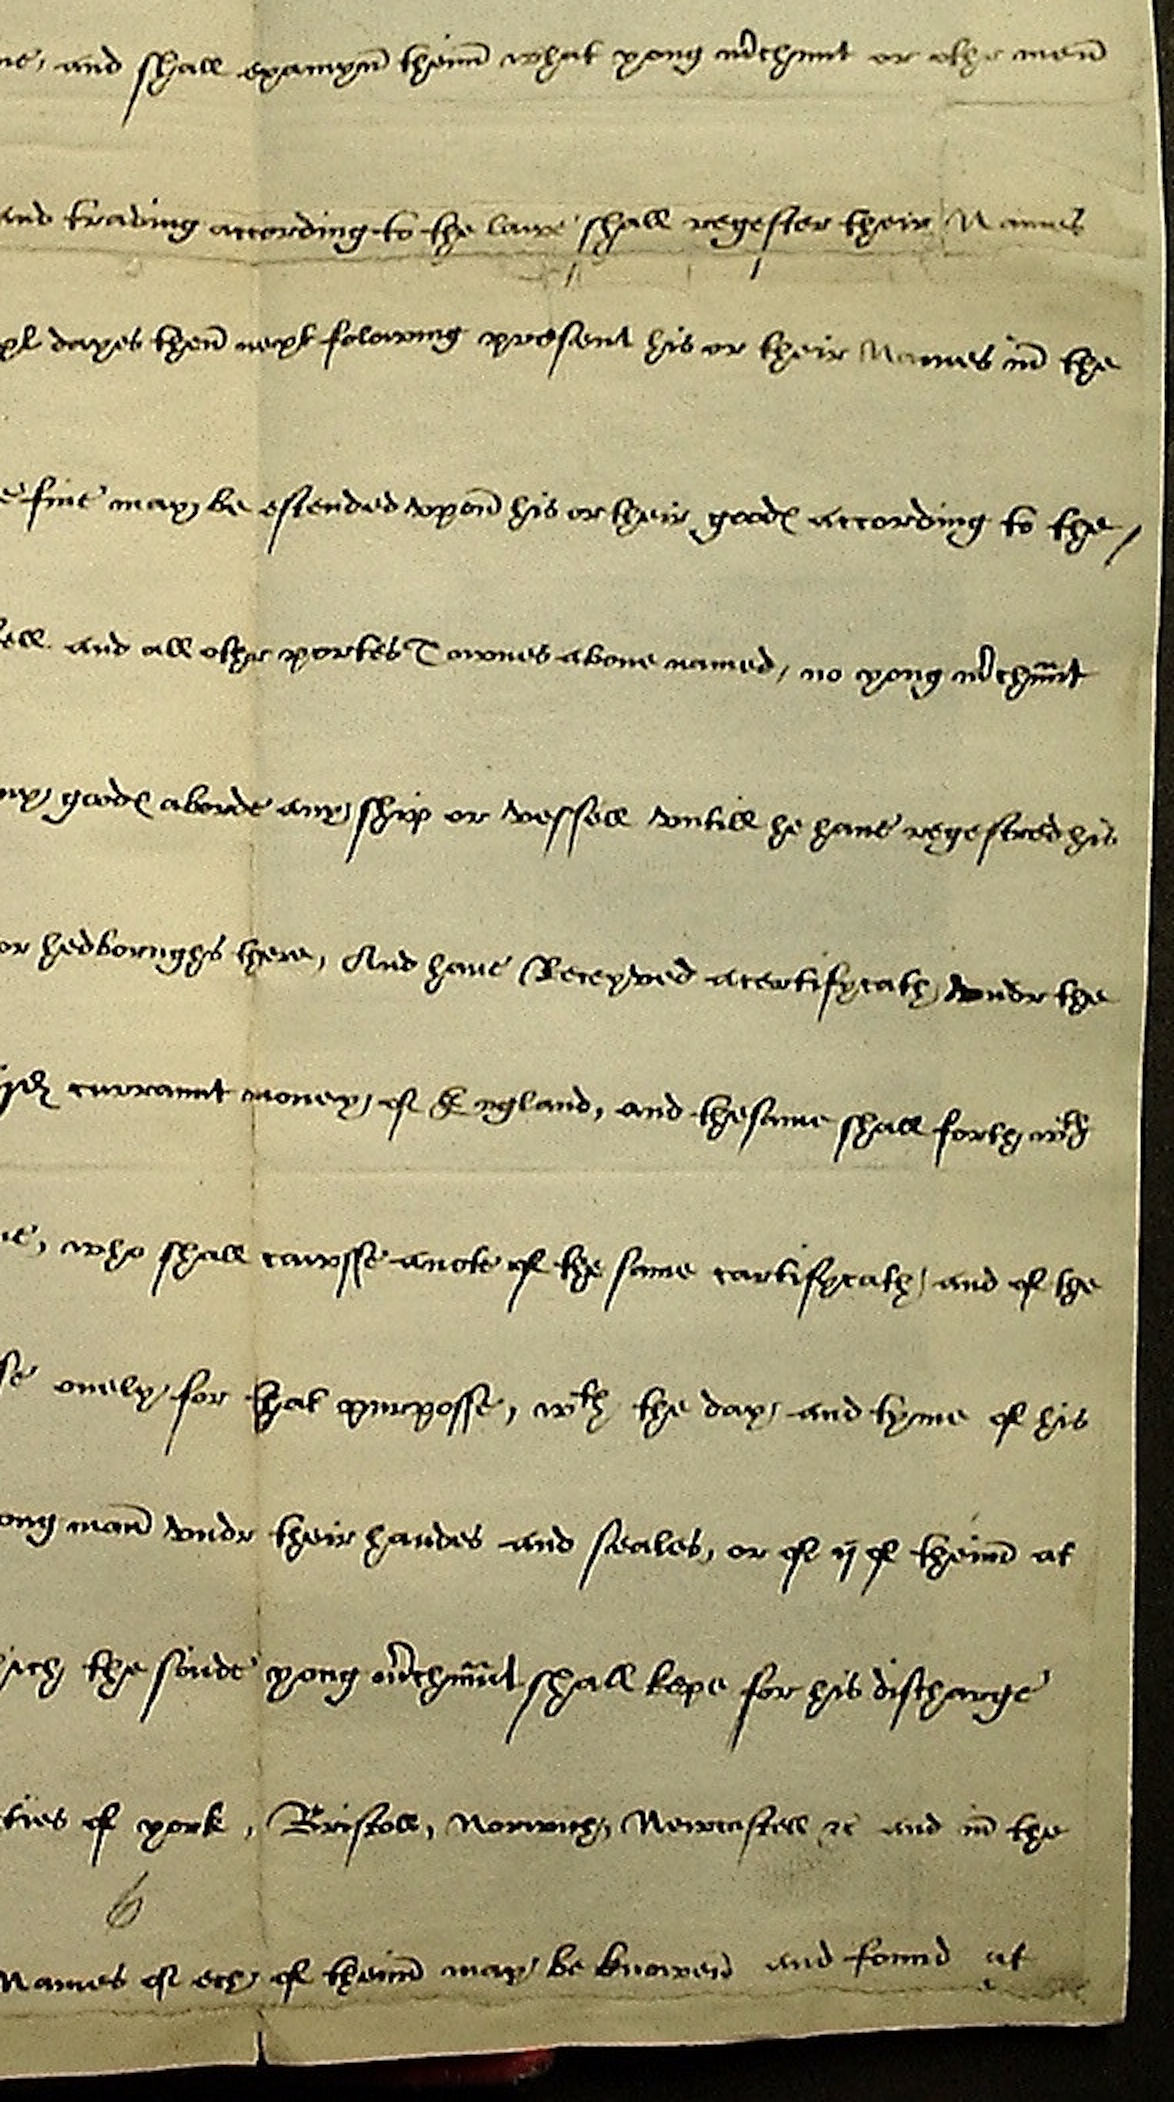 me, and shall examyn̄ theim̄ what yong m̄chnnt or othr men̄
and trading according to the lawe shall regester their Names
xl dayes then̄ next folowing present his or their Names in̄ the
e fine may be estended vpon̄ his or their goodꝭ according to the /
ell and all othr portes Townes above named, no yong m̄chānt
ny goodꝭ aborde any ship or vessell vntill he haue regestred his
or hedboroughs there, And haue Receyved a certifycath vndr the
currannt money of England, and the same shall forth wth
ne, who shall cawsse a note of the same cartifycath and of the
se onely for that purposse, wth the day and tyme of his
ong man̄ vndr their handes and seales, or of ij of theim̄ at
hich the saide yong m̄chānt shall kepe for his discharge
ties of york, Bristoll, Norwich, Newcastell &c and in̄ the
6
Names of ech of theim̄ may be knowen̄ and found at